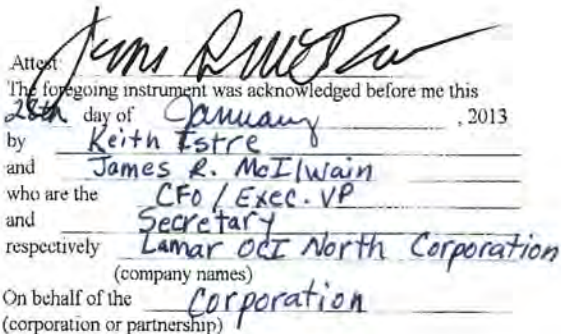 Attest:
The foregoing instrument was acknowledged before me this
28th day of January, 2013
by Keith Estre
and James R. McIlwain
who are the CFO / Exec. VP
and Secretary
respectively Lamar OCI North Corporation
(company names)
On behalf of the Corporation
(corporation or partnership)